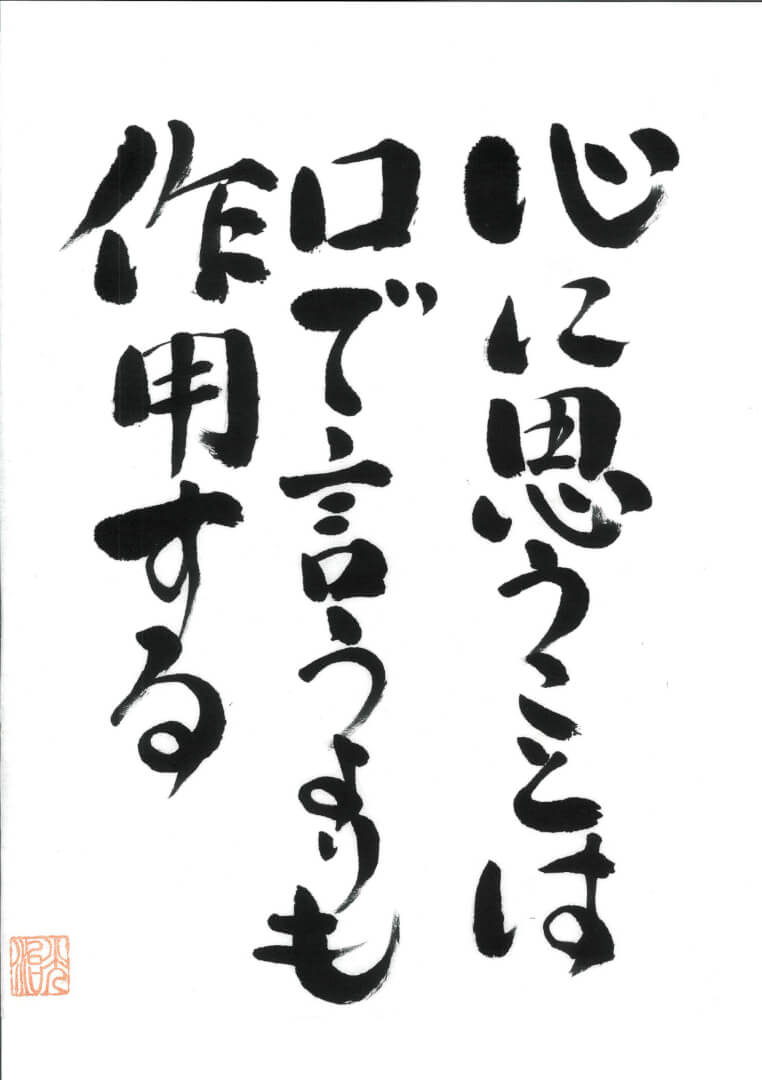 心に思うことは
口で言うよりも
作用する